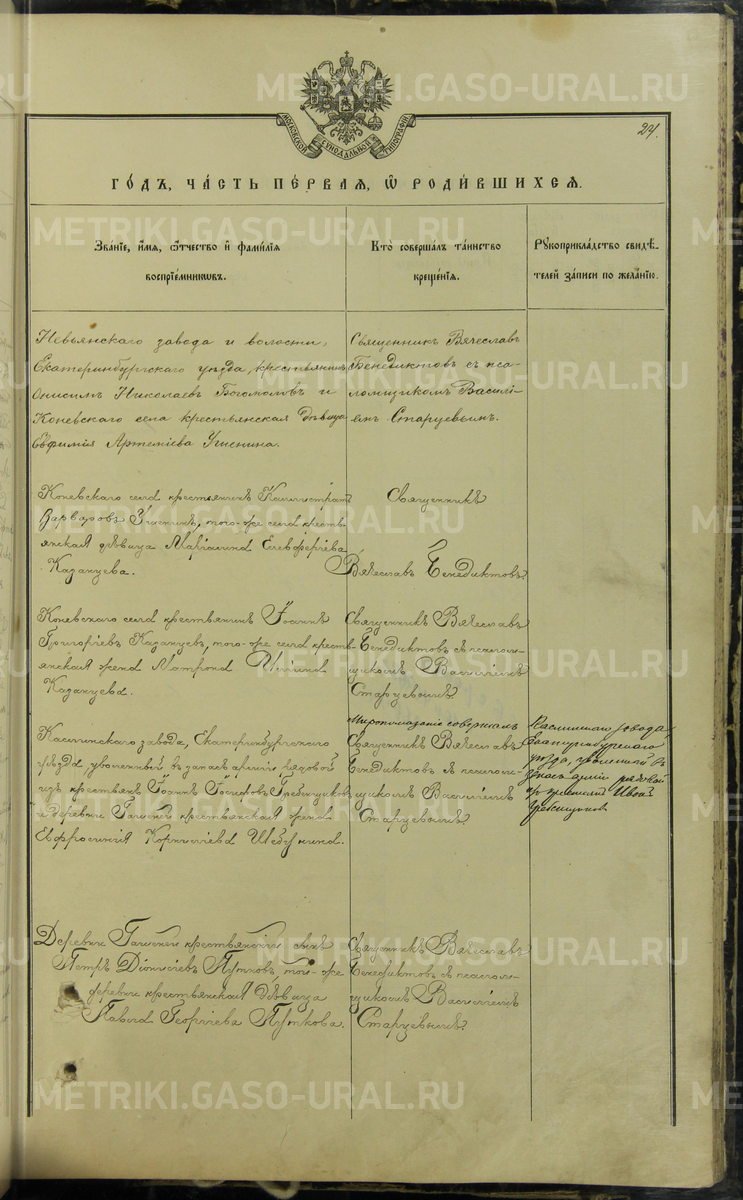 METRIKI.GASO-URAL.RU
МОСКОВСКОЙ СѴНОДАЛЬНОЙ ТИПОГРАФІИ
24.
ГО́ДЪ, ЧА́СТЬ ПЕ́РВАѦ, Ѽ РОДИ́ВШИХСѦ.
Зва́нїе, и́мѧ, Ѻ҆́тчество и҆ фами́лїѧ
воспрїе́мникѡвъ.
Кто̀ соверша́лъ та́инство
креще́нїѧ.
Рꙋкоприкла́дство свидѣ́-
телей за́писи по жела́нїю.
Невьянскаго завода и волости,
Екатеринбургскаго уѣзда, крестьянинъ
Онисимъ Николаевъ Богомоловъ и
Коневскаго села крестьянская дѣвица
Евфимія Артемiева
Священникъ Вячеславъ
Бенедиктовъ съ пса-
ломщикомъ Василі-
емъ Старцевымъ.
Коневскаго села крестьянинъ Каллистратъ
того-же села кресть-
янская дѣвица Елевферіева
Казанцева.
Священникъ
Вячеславъ Бенедиктовъ
Коневскаго села крестьянинъ Іоаннъ
Григоріевъ Казанцевъ, того-же села кресть-
янская жена Матрона
Казанцева.
Священникъ Вячеславъ
Бенедиктовъ съ псалом-
щикомъ Василіемъ
Старцевымъ.
Каслинскаго завода, Екатеринбургскаго
уѣзда, уволенный въ запасъ арміи рядовой
изъ крестьянъ Іоаннъ Гребенщиковъ
и деревни крестьянская жена
Евфросинія Корниліева
Миропомазаніе совершалъ
Священникъ Вячеславъ
Бенедиктовъ съ псалом-
щикомъ Василіемъ
Старцевымъ.
Каслинского завода
Екатеринбургскаго
уѣзда, уволенный в
запас армии рядовой
из крестьян Иван
Гребенщиков
Деревни крестьянскій сынъ
Петръ Діонисіевъ Путковъ, той-же
деревни крестьянская дѣвица
Георгіева Путкова.
Священникъ Вячеславъ
Бенедиктовъ съ псалом-
щикомъ Василіемъ
Старцевымъ.